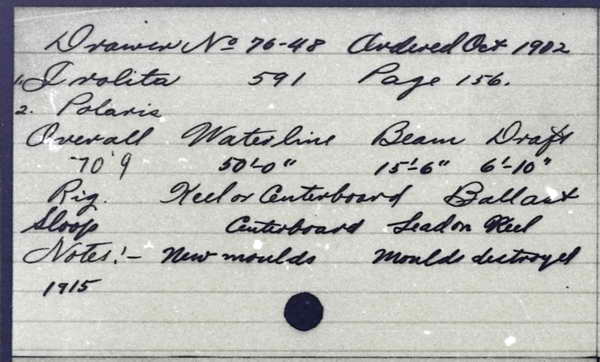 Drawer No 76-48 Ordered Oct 1902
1. Irolita 591 Page 156.
2. Polaris
Overall Waterline Beam Draft
70'9 50'-0" 15'-6" 6'-10"
Rig. Keel or Centerboard Ballast
Sloop Centerboard Lead on Keel
Notes:- New moulds Moulds destroyed
1915